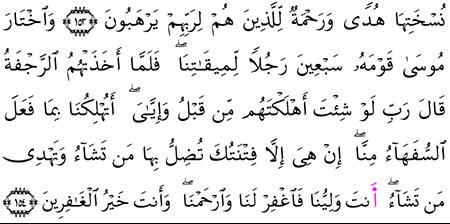 نُسْخَتِهَا هُدًى وَرَحْمَةٌ لِّلَّذِينَ هُمْ لِرَبِّهِمْ يَرْهَبُونَ ١٥٣ وَاخْتَارَ
مُوسَىٰ قَوْمَهُۥ سَبْعِينَ رَجُلًا لِّمِيقَٰتِنَا ۖ فَلَمَّا أَخَذَتْهُمُ الرَّجْفَةُ
قَالَ رَبِّ لَوْ شِئْتَ أَهْلَكْتَهُم مِّن قَبْلُ وَإِيَّٰىَ ۖ أَتُهْلِكُنَا بِمَا فَعَلَ
السُّفَهَآءُ مِنَّا ۖ إِنْ هِىَ إِلَّا فِتْنَتُكَ تُضِلُّ بِهَا مَن تَشَآءُ وَتَهْدِى
مَن تَشَآءُ ۖ أَنتَ وَلِيُّنَا فَاغْفِرْ لَنَا وَارْحَمْنَا ۖ وَأَنتَ خَيْرُ الْغَٰفِرِينَ ١٥٤